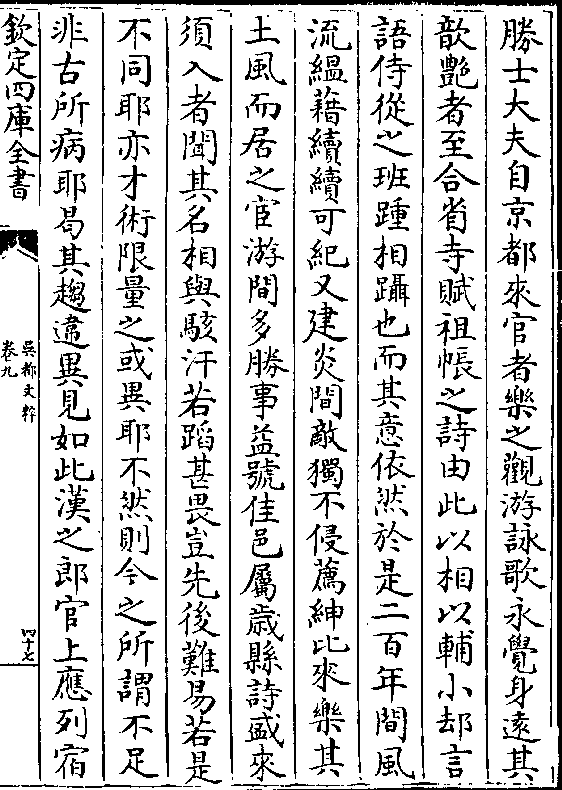 勝士大夫自京都來官者樂之觀游詠歌永覺身遠其
歆艷者至合省寺賦祖帳之詩由此以相以輔小却言
語侍從之班踵相躡也而其意依然於是二百年間風
流緼藉續續可紀又建炎間敵獨不侵薦紳比來樂其
土風而居之宦游間多勝事益號佳邑屬歲縣詩盛來
須入者聞其名相與駭汗若蹈甚畏豈先後難易若是
不同耶亦才術限量之或異耶不然則今之所謂不足
非古所病耶曷其趨違異見如此漢之郎官上應列宿
欽定四庫全書
吳都文粹
卷九
四十七